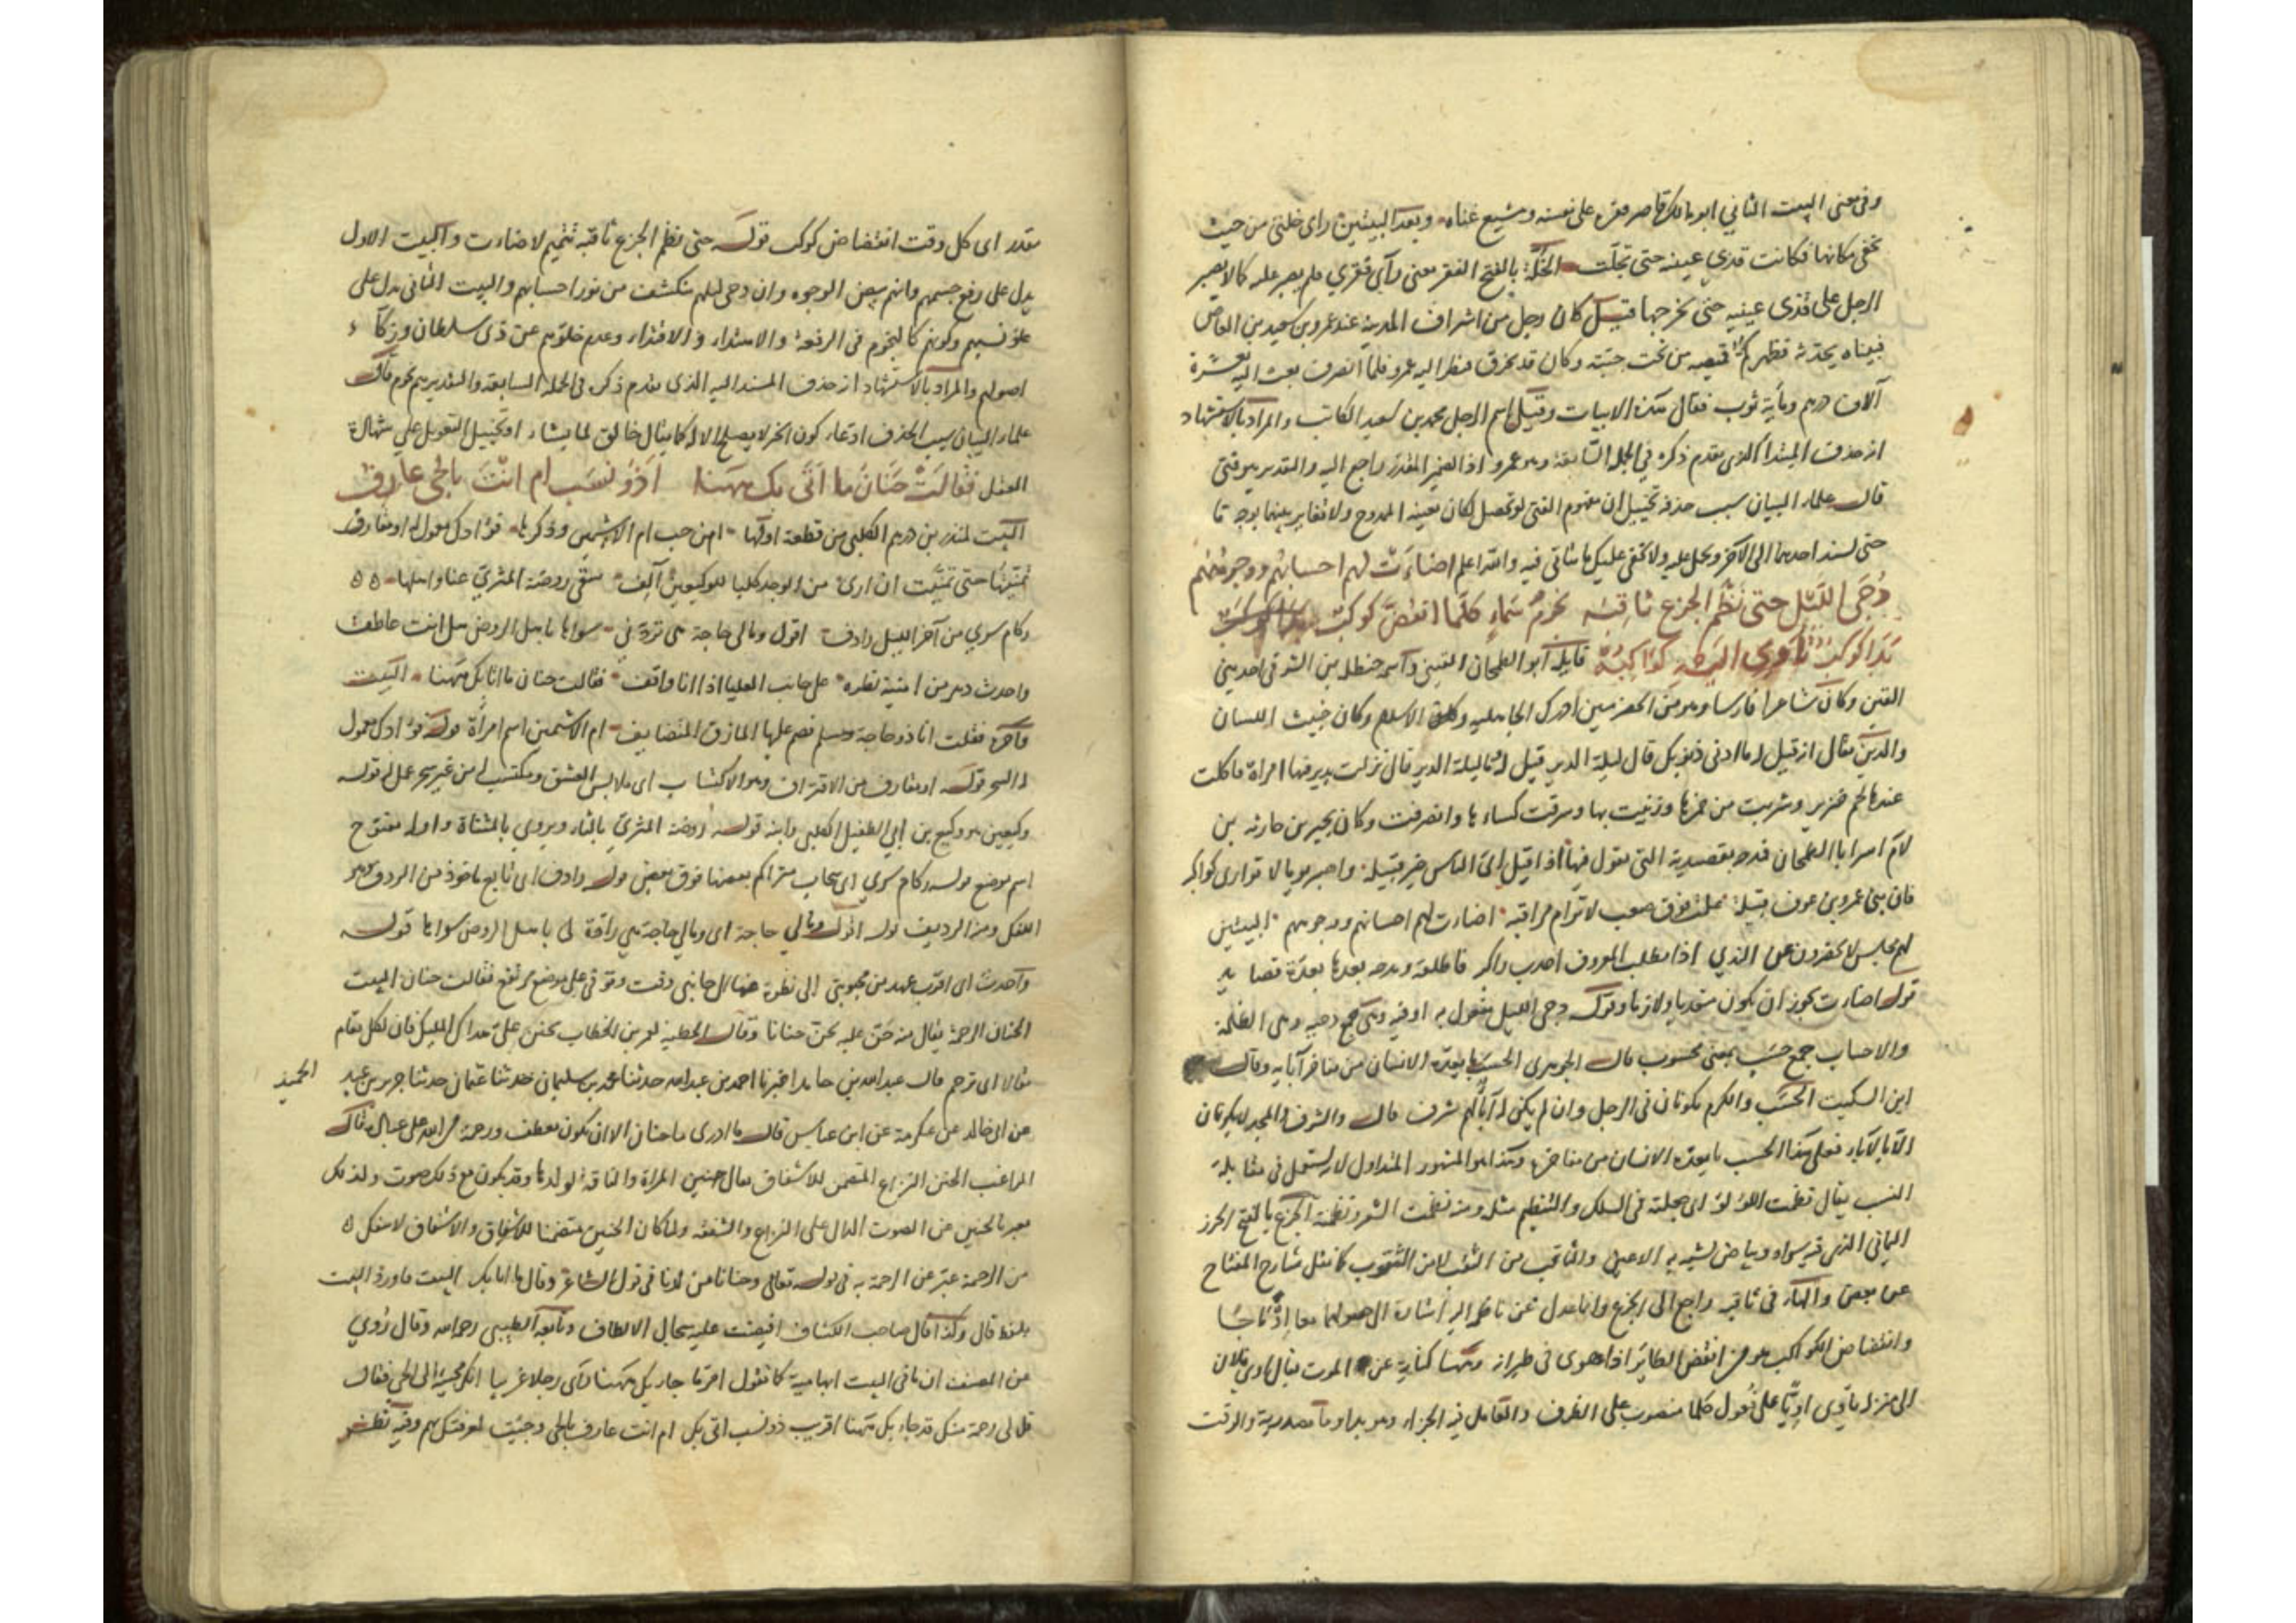 وفى معنى البيت الثاني ابو مالك قاصر فقره على نفسه ومشيع غناه وبعد البيتين راى خلتى من حيث
يخفى مكانها فكانت قذى عينيه حتى تجلت الخلة بالفتح الفقر يعنى رأى فقري فلم يصبر عليه كما لا يصبر
الرجل على قذى عينيه حتى يخرجها قيل كان رجل من اشراف المدينة عند عمرو بن سعيد بن العاص
فبيناه يحدثه فظهر كم قميصه من تحت جبته وكان قد تخرق فنظر اليه عمرو فلما انصرف بعث اليه بعشرة
آلاف درهم ومأية ثوب فقال هذه الابيات وقيل اسم الرجل محمد بن سعيد الكاتب والمراد بالاستشهاد
انه حذف المبتدا الذى تقدم ذكره في الجملة السابقة وهو عمرو اذ الضمير المقدر راجع اليه والتقدير هو فتى
قال علماء البيان سبب حذفه تخييل ان مفهوم الفتى لو تحصل لكان نعينه الممدوح ولا تغاير بينهما بوجه ما
حتى يسند احدهما الى الآخر ويحمل عليه ولا يخفى عليك ما يتاتى فيه والله اعلم اضاءت لهم احسابهم ووجوههم
دجى الليل حتى نظم الجزع ثاقبه نجوم سماء كلما انقض كوكب
بدا كوكب تأوى اليه كواكبه قايله ابو الطمحان القينى واسمه حنظلة بن الشرقى احد بنى
القين وكان شاعرا فارسا وهو من المخضرمين ادرك الجاهلية والاسلام وكان خبيث اللسان
والدين يقال انه قيل له ما ادنى ذنوبك قال ليلة الدير قيل له ما ليلة الدير قال نزلت بديرفيها امراة فاكلت
عندها لحم خنزير وشربت من خمرها وزنيت بها وسرقت كساءها وانصرفت وكان بجير بن حارثه بن
لام اسر ابا الطمحان فمدحه بقصيدته التى يقول فيها اذا قيل اى الناس خير قبيلة واصبر يوما لا توارى كواكبه
فان بنى عمرو بن عوف قبيلة علت فوق صعب لا ترام مراقبه اضاءت لهم احسابهم ووجوههم البيتين
لهم مجلس لا يحصرون عن الندى اذا مطلب المعروف اجدب راكبه فاطلقه ومدحه بعدها بعدة قصايد
قوله اضاءت يجوز ان يكون متعديا ولازما وقوله دجى الليل مفعول به او فيه وهى جمع دجيه وهى الظلمة
والاحساب جمع حسب بمعنى محسوب قال الجوهرى الحسب ما يعده الانسان من مفاخر آبايه وقال
ابن السكيت الحسب والكرم يكونان فى الرجل وان لم يكن له آباء لهم شرف قال والشرف والمجد لا يكونان
الا بالآباء فعلى هذا الحسب ما يعده الانسان من مفاخره وهذا هو المشهور المتداول لانه يستعمل فى مقابلة
النسب يقال نظمت اللؤلؤ اى جعلته فى السلك والتنظيم مثله ومنه نظمت الشعر ونظمته الجزع بالفتح الخرز
اليمانى الذى فيه سواد وبياض تشبه به الاعين والثاقب من الثقب لا من الثقوب كما نقل شارح المفتاح
عن بعض والهاء فى ثاقبه راجع الى الجزع وانما عدل عن ناظمه اليه اشارة الى حصولهما معا
وانقضاض الكواكب هو من انقض الطاير اذا هوى فى طيرانه وههنا كناية عن الموت يقال اوى فلان
الى منزله يأوى اويا على فعول كلما منصوب على الظرف والعامل فيه الجزاء وهو بدا وما مصدرية والوقت
مقدر اى كل وقت انقضاض كوكب قوله حتى نظم الجزع ثاقبه تتميم لاضاءت والبيت الاول
يدل على رفع جسمهم وانهم بيض الوجوه وان دجى ليلهم منكشف من نور احسابهم والبيت الثانى يدل على
علو نسبهم وكونهم كالنجوم فى الرفعة والاقتدار وعدم خلوهم عن ذى سلطان
اصولهم والمراد بالاستشهاد انه حذف المسند اليه الذى تقدم ذكره فى الجملة السابقة والتقدير هم نجوم قال
علماء البيان سبب الحذف ادعاء كون الخبر لا يصلح الا له كما يقال خالق لما يشاء او تخييل التعويل على شهادة
العقل فقالت حنان ما اتى بك ههنا اذو نسب ام انت بالحى عارف
البيت لمنذر بن درهم الكلبى من قطعة اولها امن حب ام الاشيمين وذكرها فؤادك معمول له او مقارف
تمنيتها حتى تمنيت ان ارى من الوجد كلبا للوكيعين آلف سقى روضة المثرى عنا واهلها
ركام سرى من آخر الليل رادف اقول ومالى حاجة هى تردنى سواها باهل الروض هل انت عاطف
واحدث عهد من امنية نظرة على جانب العليا اذ انا واقف فقالت حنان ما اتى بك ههنا البيت
وآخره فقلت انا ذو حاجة ومسلم فضم علينا المازق المتضايف ام الاشيمين اسم امرأة قوله فؤادك معمول
له السحر قوله او مقارف من الاقتراف وهو الاكتساب اى ملابس العشق ومكتسب له من غير سحر عمل له قوله
وكيعين هو وكيع بن ابى الطفيل الكلبى وابنه قوله روضة المثرى بالثاء ويروى بالمثناة واوله مفتوح
اسم موضع قوله ركام سرى اى سحاب متراكم بعضها فوق بعض قوله رادف اى تابع ماخوذ من الردف وهو
الكفل ومنه الرديف قوله اقول ومالي حاجة اى ومالى حاجة هى رادة لى باهل الروض سواها قوله
واحدث اى اقرب عهد من محبوبتى الى نظرة جانبى وقت وقوفى على موضع مرتفع فقالت حنان البيت
الحنان الرحمة يقال منه حن عليه يحن حنانا وقال الحطيئة لعمر بن الخطاب تحنن على هداك المليك فان لكل مقام
مقالا اى ترحم قال عبد الله بن حامد اخبرنا احمد بن عبد الله حدثنا محمد بن سليمان حدثنا عثمان حدثنا جرير بن عبد
الحميد
عن ابى خالد عن عكرمة عن ابن عباس قال ما ادرى ما حنان الا ان يكون يعطف ورحمة من الله على عباده قال
الراغب الحنين النزاع المتضمن للاشفاق يقال حنين المراة والناقة لولدها وقد يكون مع ذلك صوت ولذلك
يعبر بالحنين عن الصوت الدال على النزاع والشفقه ولما كان الحنين متضمنا للاشفاق والاشفاق لا ينفك
من الرحمة عبر عن الرحمة به فى قوله تعالى وحنانا من لدنا فى قول الشاعر وقال ما اتى بك البيت فاورد البيت
بلفظ قال وكذا قال صاحب الكشاف افيضت عليه سجال الالطاف وتابعه الطيبى رحمه الله وقال روى
من المصنف ان ما فى البيت ابهامية كما تقول امر ما جاء بك ههنا رأى رجلا غريبا انكر مجيئه الى الحى فقال
قل لى رحمة منك قد جاء بك ههنا اقريب ذو نسب اتى بك ام انت عارف بالحى وجئت لمعرفتك بهم وفيه نظر